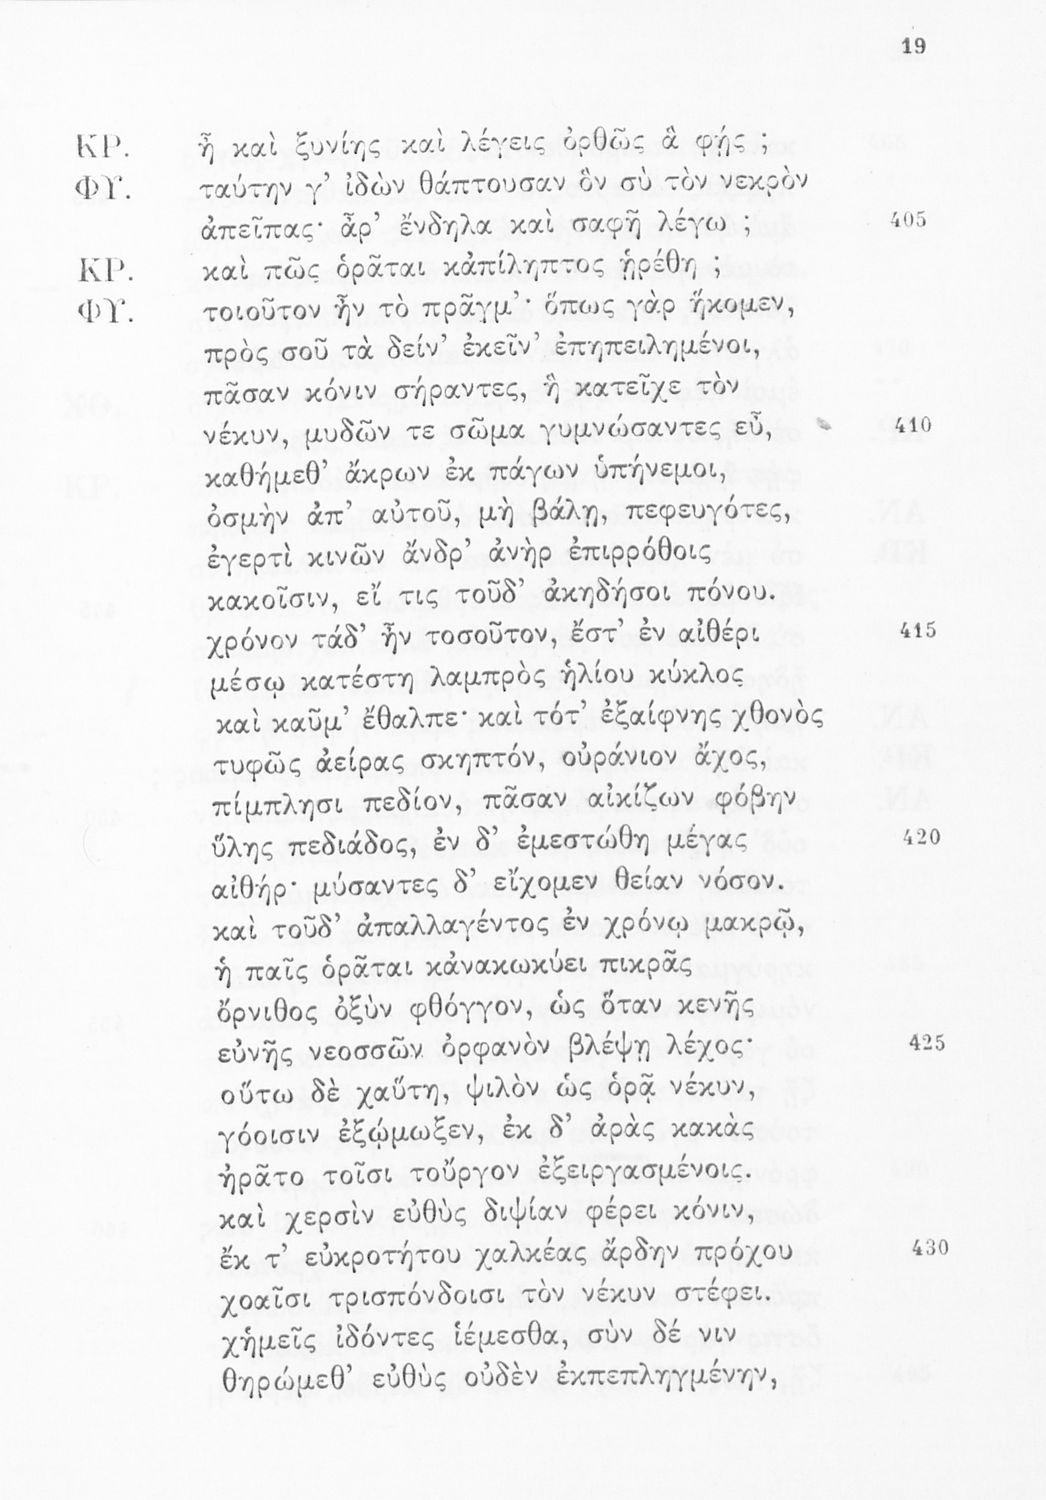 19
ΚΡ. ἦ καὶ ξυνίης καὶ λέγεις ὀρθῶς ἃ φῄς ;
ΦΥ. ταύτην γ’ ἰδὼν θάπτουσαν ὃν σὺ τὸν νεκρὸν
ἀπεῖπας· ἆρ’ ἔνδηλα καὶ σαφῆ λέγω ; 405
ΚΡ. καὶ πῶς ὁρᾶται κἀπίληπτος ᾑρέθη ;
ΦΥ. τοιοῦτον ἦν τὸ πρᾶγμ’· ὅπως γὰρ ἥκομεν,
πρὸς σοῦ τὰ δείν’ ἐκεῖν’ ἐπηπειλημένοι,
πᾶσαν κόνιν σήραντες, ἣ κατεῖχε τὸν
νέκυν, μυδῶν τε σῶμα γυμνώσαντες εὖ, 410
καθήμεθ’ ἄκρων ἐκ πάγων ὑπήνεμοι,
ὀσμὴν ἀπ’ αὐτοῦ, μὴ βάλῃ, πεφευγότες,
ἐγερτὶ κινῶν ἄνδρ’ ἀνὴρ ἐπιρρόθοις
κακοῖσιν, εἴ τις τοῦδ’ ἀκηδήσοι πόνου.
χρόνον τάδ’ ἦν τοσοῦτον, ἔστ’ ἐν αἰθέρι 415
μέσῳ κατέστη λαμπρὸς ἡλίου κύκλος
καὶ καῦμ’ ἔθαλπε· καὶ τότ’ ἐξαίφνης χθονὸς
τυφῶς ἀείρας σκηπτόν, οὐράνιον ἄχος,
πίμπλησι πεδίον, πᾶσαν αἰκίζων φόβην
ὕλης πεδιάδος, ἐν δ’ ἐμεστώθη μέγας 420
αἰθήρ· μύσαντες δ’ εἴχομεν θείαν νόσον.
καὶ τοῦδ’ ἀπαλλαγέντος ἐν χρόνῳ μακρῷ,
ἡ παῖς ὁρᾶται κἀνακωκύει πικρᾶς
ὄρνιθος ὀξὺν φθόγγον, ὡς ὅταν κενῆς
εὐνῆς νεοσσῶν ὀρφανὸν βλέψῃ λέχος· 425
οὕτω δὲ χαὕτη, ψιλὸν ὡς ὁρᾷ νέκυν,
γόοισιν ἐξῴμωξεν, ἐκ δ’ ἀρὰς κακὰς
ἠρᾶτο τοῖσι τοὖργον ἐξειργασμένοις.
καὶ χερσὶν εὐθὺς διψίαν φέρει κόνιν,
ἔκ τ’ εὐκροτήτου χαλκέας ἄρδην πρόχου 430
χοαῖσι τρισπόνδοισι τὸν νέκυν στέφει.
χἠμεῖς ἰδόντες ἱέμεσθα, σὺν δέ νιν
θηρώμεθ’ εὐθὺς οὐδὲν ἐκπεπληγμένην,